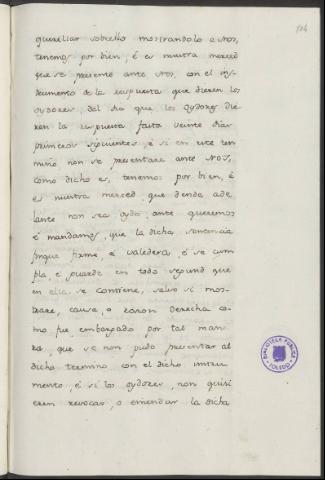 querellar sobrello mostrandolo a Nos,
tenemos por bien, é es nuestra merced
que se presente ante Nos, con el ins-
trumento de la respuesta que dieren los
oydores, del dia que los oydores die
ren la respuesta fasta veinte dias
primeros siguientes, é si en este ter
mino non se presentare ante Nos,
como dicho es, tenemos por bien, é
es nuestra merced que dende ade
lante non sea oydo, ante queremos
é mandamos, que la dicha sentencia
finque firme, é valedera, é se cum
pla, e guarde en todo segund que
en ella se contiene, salvo si mos-
trare, causa, o razon derecha co-
mo fue embargado por tal mane-
ra, que se non pudo presentar al
dicho termino con el dicho instru-
mento, é si los oydores, non quisi
eren revocar, o emendar la dicha
BIBLIOTECA PUBLICA
TOLEDO